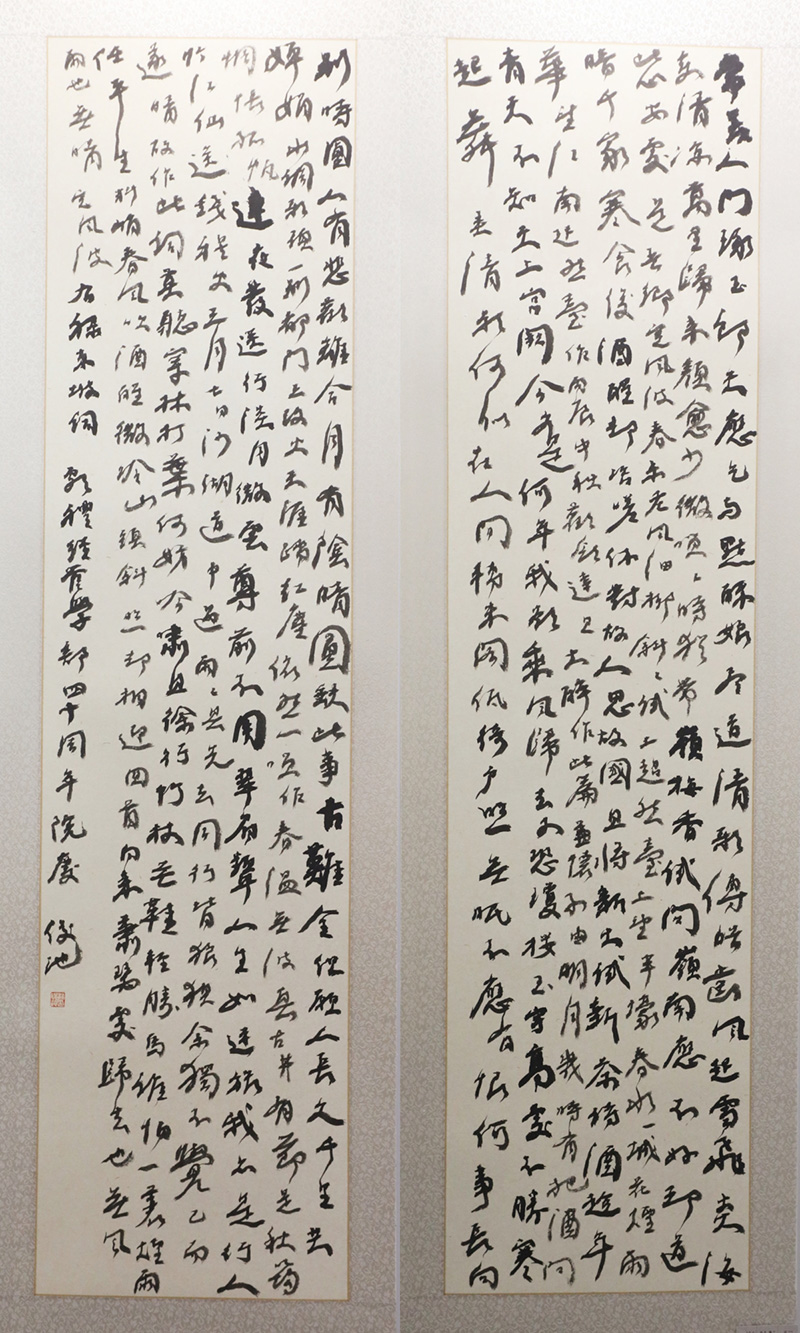 常羡人间琢玉郎天應乞与點酥娘尽道清歌傳皓齒風起雪飛炎海
变清凉萬里歸来顏愈少微咲咲時犹带嶺梅香試問嶺南應不好却道
此心安處是吾鄉定風波春未老風细柳斜斜試上超然臺上望半壕春水一城花煙雨
暗千家寒食後酒醒却咨嗟休對故人思故國且將新火試新茶詩酒趁年
華望江南超然臺作丙辰中秋歡飲達旦大醉作此篇兼懷子由明月幾時有把酒問
青天不知天上宫闕今夕是何年我欲乘風歸去又恐瓊樓玉宇高處不勝寒
起舞弄清影何似在人间轉朱閣低绮户照無眠不應有恨何事長向
别時圓人有悲歡離合月有陰晴圓缺此事古難全但願人長久千里共
嬋娟水調歌頭一别都門三改火天涯踏红塵依然一咲作春温無波真古井有節是秋筠
惆悵孤帆連夜發送行淡月微雲尊前不用翠眉颦人生如逆旅我亦是行人
临江仙送錢穆父三月七日沙湖道中遇雨雨具先去同行皆狼狽余獨不覺已而
遂晴故作此詞莫聽穿林打葉何妨吟嘯且徐行竹杖芒鞋輕勝馬谁怕一蓑煙雨
任平生料峭春風吹酒醒微冷山頭斜照却相迎回首向来蕭瑟處歸去也無風
雨也無晴定風波右録東坡詞 學部四十周年院慶 俊池